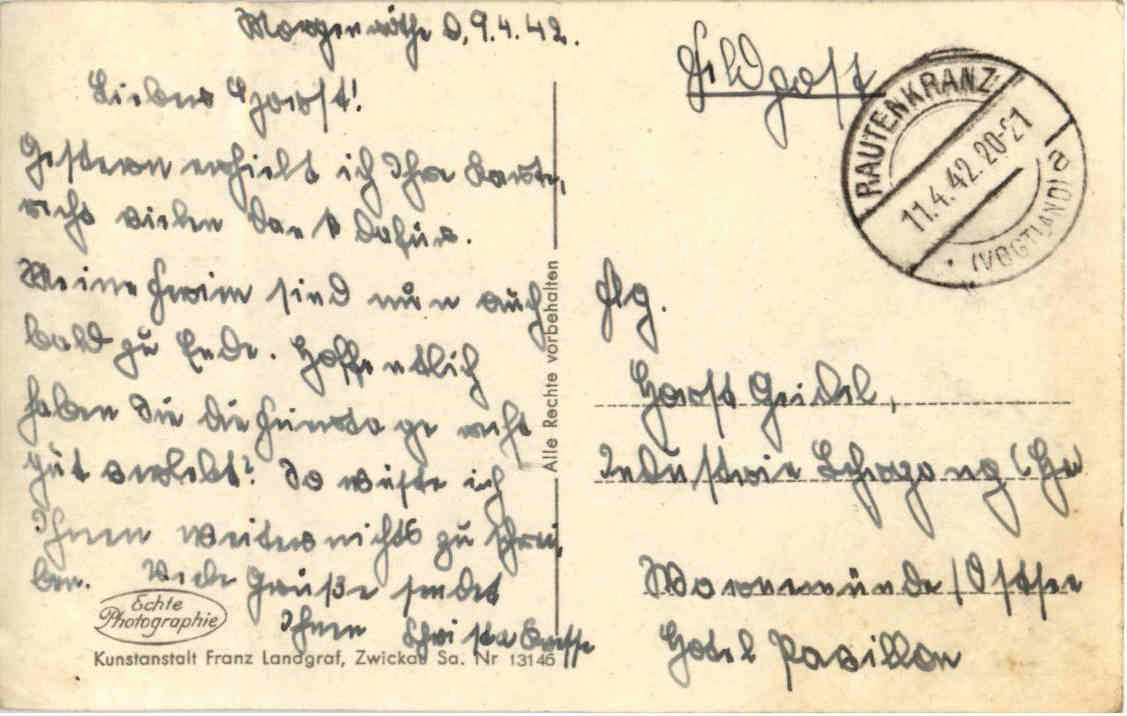 Morgenröthe d, 9.4.42.
Lieber Horst!
Gestern erhielt ich Ihre Karte,
recht vielen Dank dafür.
Meine Ferien sind nun auch
bald zu Ende. Hoffentlich
haben Sie die Feiertage recht
gut verlebt? So wüste ich
Ihnen weiter nichts zu schrei,
ben. Viele Grüße sendet
Ihnen Christa
Echte
Photographie
Kunstanstalt Franz Landgraf, Zwickau Sa. Nr 13146
Alle Rechte vorbehalten
Feldpost
RAUTENKRANZ
11.4.42.20-21
(VOGTLAND) a
Flg.
Horst Geidel,
Industrie
Warnemünde/Ostsee
Hotel Pavillon